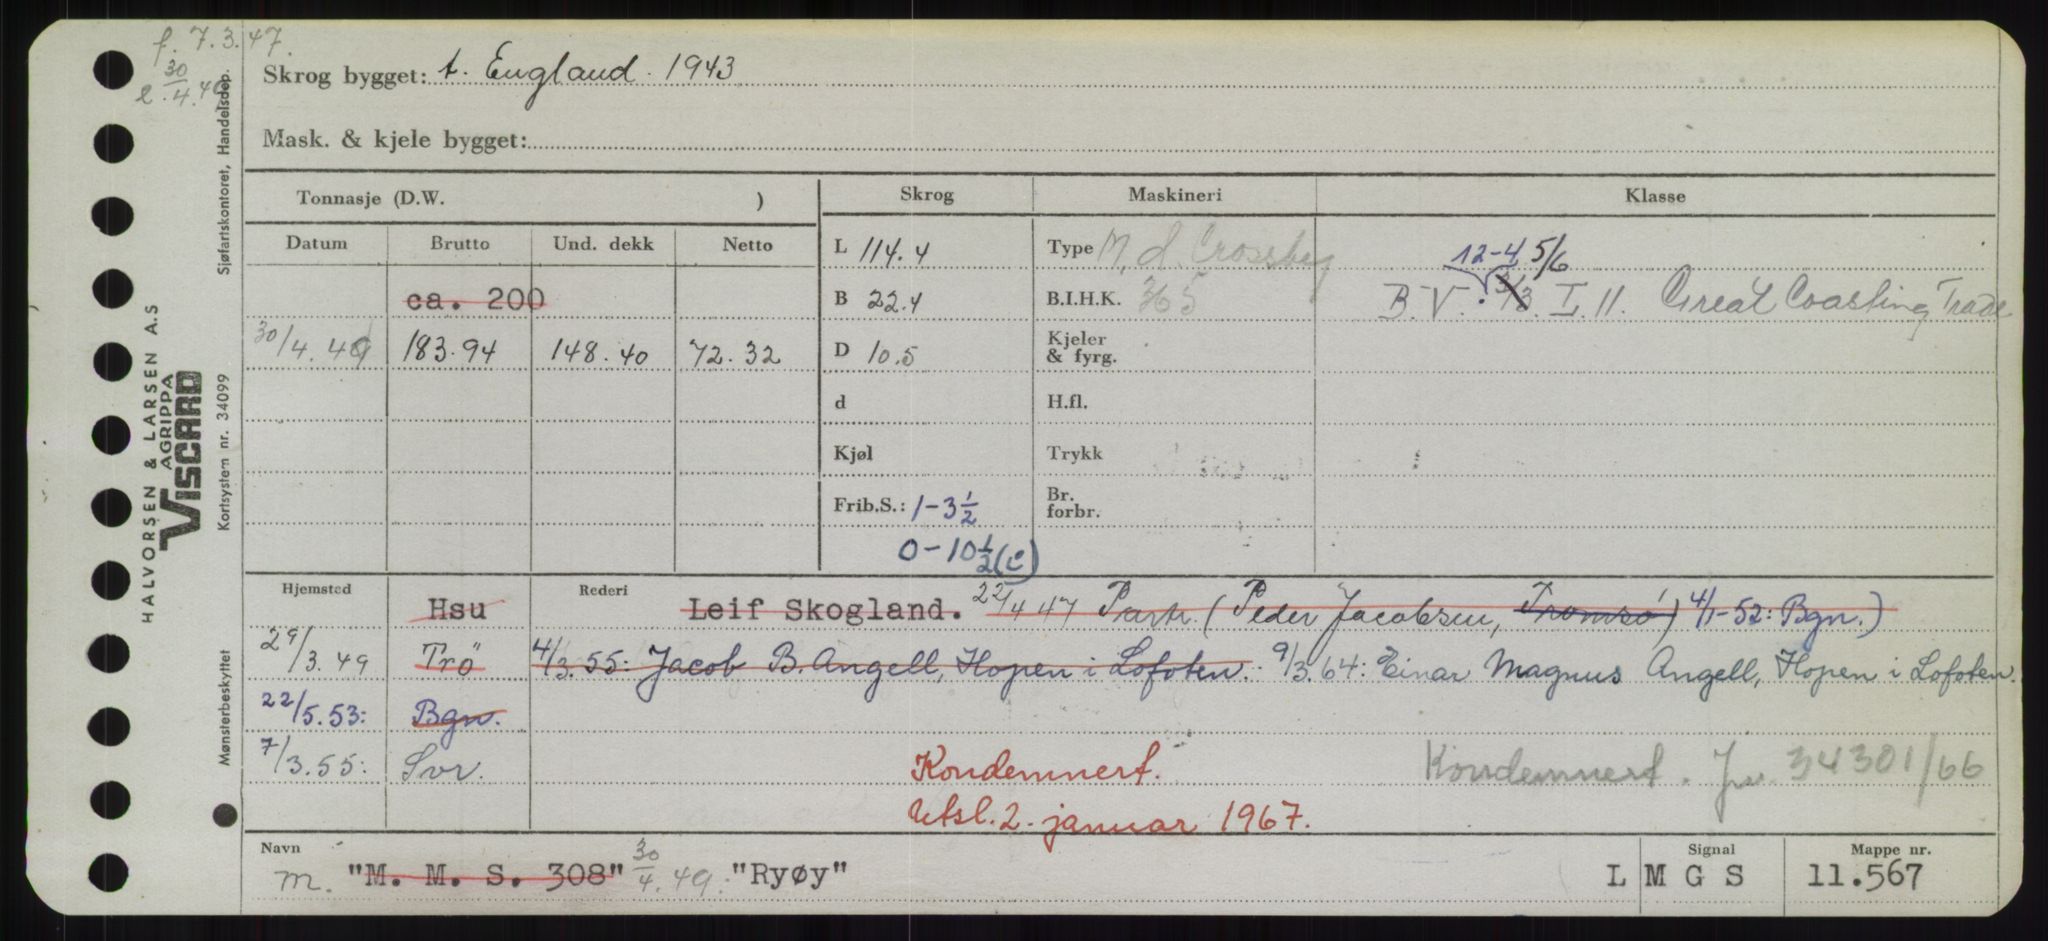 f. 7.3.47.
30/4.49
Skrog bygget: t. England. 1943
Mask. & kjele bygget:
Tonnasje (D.W. )
Skrog
Maskineri
Klasse
Datum
Brutto
Und. dekk
Netto
L 114.4
Type M. d. Crossley
12-4 5/6
ca. 200
B 22.4
B.I.H.K. 365
B. V. 3/3. I. 11. Great Coasting Trade
30/4.49
183.94
148.40
72.32
D 10.5
Kjeler & fyrg.
d
H.fl.
Kjøl
Trykk
Frib.S.: 1-3 1/2
Br. forbr.
0-10 1/2
Hjemsted
Hsu
Rederi
Leif Skogland. 22/4 47 Partr. (Peder Jacobsen, Tromsø) 4/1-52: Bgn.)
29/3.49 Trö
4/3.55: Jacob B. Angell, Hopen i Lofoten. 9/3.64: Einar Magnus Angell, Hopen i Lofoten.
22/5.53: Bgn.
7/3.55: Svr.
Kondemnert.
Kondemnert. Jnr. 34301/66
Utsl. 2. januar 1967.
Navn
m. "M. M. S. 308" 30/4.49: "Ryøy"
Signal
L M G S
Mappe nr.
11.567
HALVORSEN & LARSEN A.S
AGRIPPA
VISCARD
Mønsterbeskyttet Kortsystem nr. 34099 Sjøfartskontoret, Handelsdep.